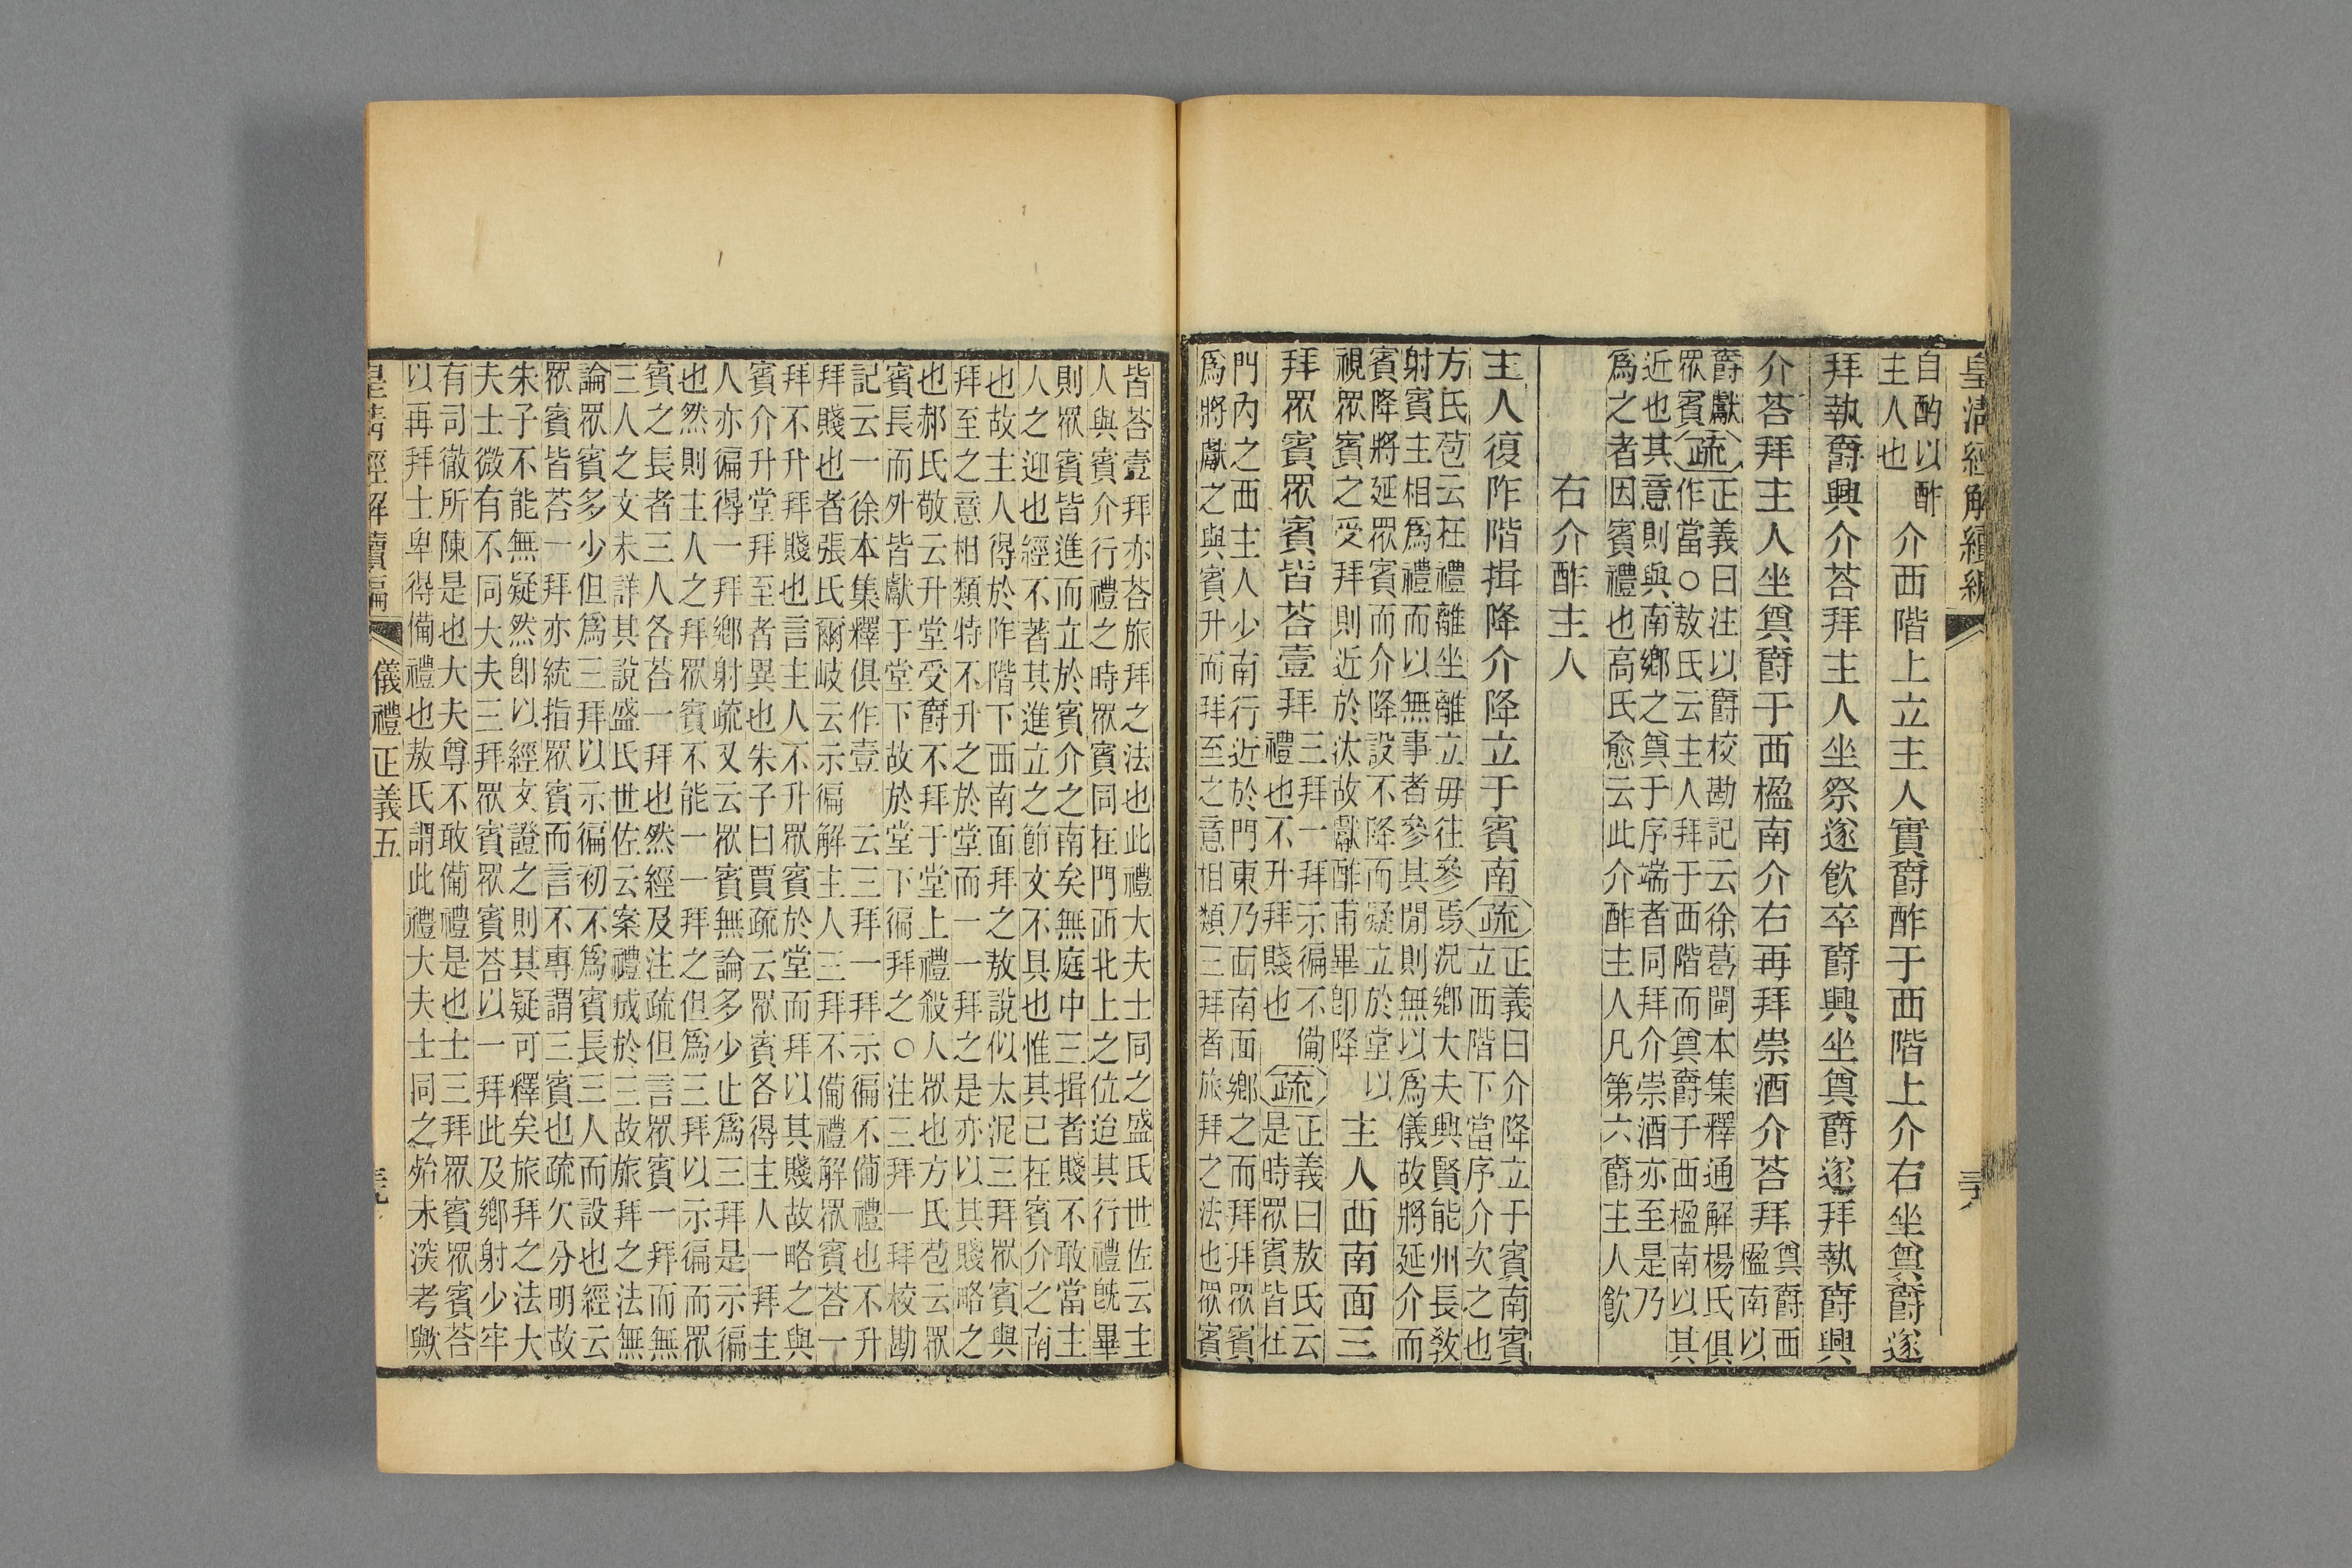 皇清經解續編
自酌以酢
主人也
介西階上立主人實爵酢于西階上介右坐奠爵遂
拜執爵興介荅拜主人坐祭遂飮卒爵興坐奠爵遂拜執爵興
介荅拜主人坐奠爵于西楹南介右再拜崇酒介荅拜
奠爵西
楹南以
爵獻
眾賓
疏
正義曰注以爵校勘記云徐葛閩本集釋通解楊氏俱
作當○敖氏云主人拜于西階而奠爵于西楹南以其
近也其意則與南鄉之奠于序端者同拜介崇酒亦至是乃
爲之者因賓禮也高氏愈云此介酢主人凡第六爵主人飮
右介酢主人
主人復阼階揖降介降立于賓南
疏
正義曰介降立于賓南賓
立西階下當序介次之也
方氏苞云在禮離坐離立毋往參焉況鄉大夫興賢能州長敎
射賓主相爲禮而以無事者參其閒則無以爲儀故將延介而
賓降將延眾賓而介降設不降而疑立於堂以
視眾賓之受拜則近於汰故獻酢甫畢卽降
主人西南面三
拜眾賓眾賓皆荅壹拜
三拜一拜示徧不備
禮也不升拜賤也
疏
正義曰敖氏云
是時眾賓皆在
門內之西主人少南行近於門東乃西南面鄉之而拜拜眾賓
爲將獻之與賓升而拜至之意相類三拜者旅拜之法也眾賓
皆荅壹拜亦荅旅拜之法也此禮大夫士同之盛氏世佐云主
人與賓介行禮之時眾賓同在門西北上之位迨其行禮旣畢
則眾賓皆進而立於賓介之南矣無庭中三揖者賤不敢當主
人之迎也經不著其進立之節文不具也惟其已在賓介之南
也故主人得於阼階下西南面拜之敖說似太泥三拜眾賓與
拜至之意相類特不升之於堂而一一拜之是亦以其賤略之
也郝氏敬云升堂受爵不拜于堂上禮殺人眾也方氏苞云眾
賓長而外皆獻于堂下故於堂下徧拜之○注三拜一拜校勘
記云一徐本集釋俱作壹 云三拜一拜示徧不備禮也不升
拜賤也者張氏爾岐云示徧解主人三拜不備禮解眾賓荅一
拜不升拜賤也言主人不升眾賓於堂而拜以其賤故略之與
賓介升堂拜至者異也朱子曰賈疏云眾賓各得主人一拜主
人亦徧得一拜鄉射疏又云眾賓無論多少止爲三拜是示徧
也然則主人之拜眾賓不能一一拜之但爲三拜以示徧而眾
賓之長者三人各荅一拜也然經及注疏但言眾賓一拜而無
三人之文未詳其說盛氏世佐云案禮成於三故旅拜之法無
論眾賓多少但爲三拜以示徧初不爲賓長三人而設也經云
眾賓皆荅一拜亦統指眾賓而言不專謂三賓也疏欠分明故
朱子不能無疑然卽以經文證之則其疑可釋矣旅拜之法大
夫士微有不同大夫三拜眾賓眾賓荅以一拜此及鄉射少牢
有司徹所陳是也大夫尊不敢備禮是也士三拜眾賓眾賓荅
以再拜士卑得備禮也敖氏謂此禮大夫士同之殆未深考歟
皇清經解續編
儀禮正義五